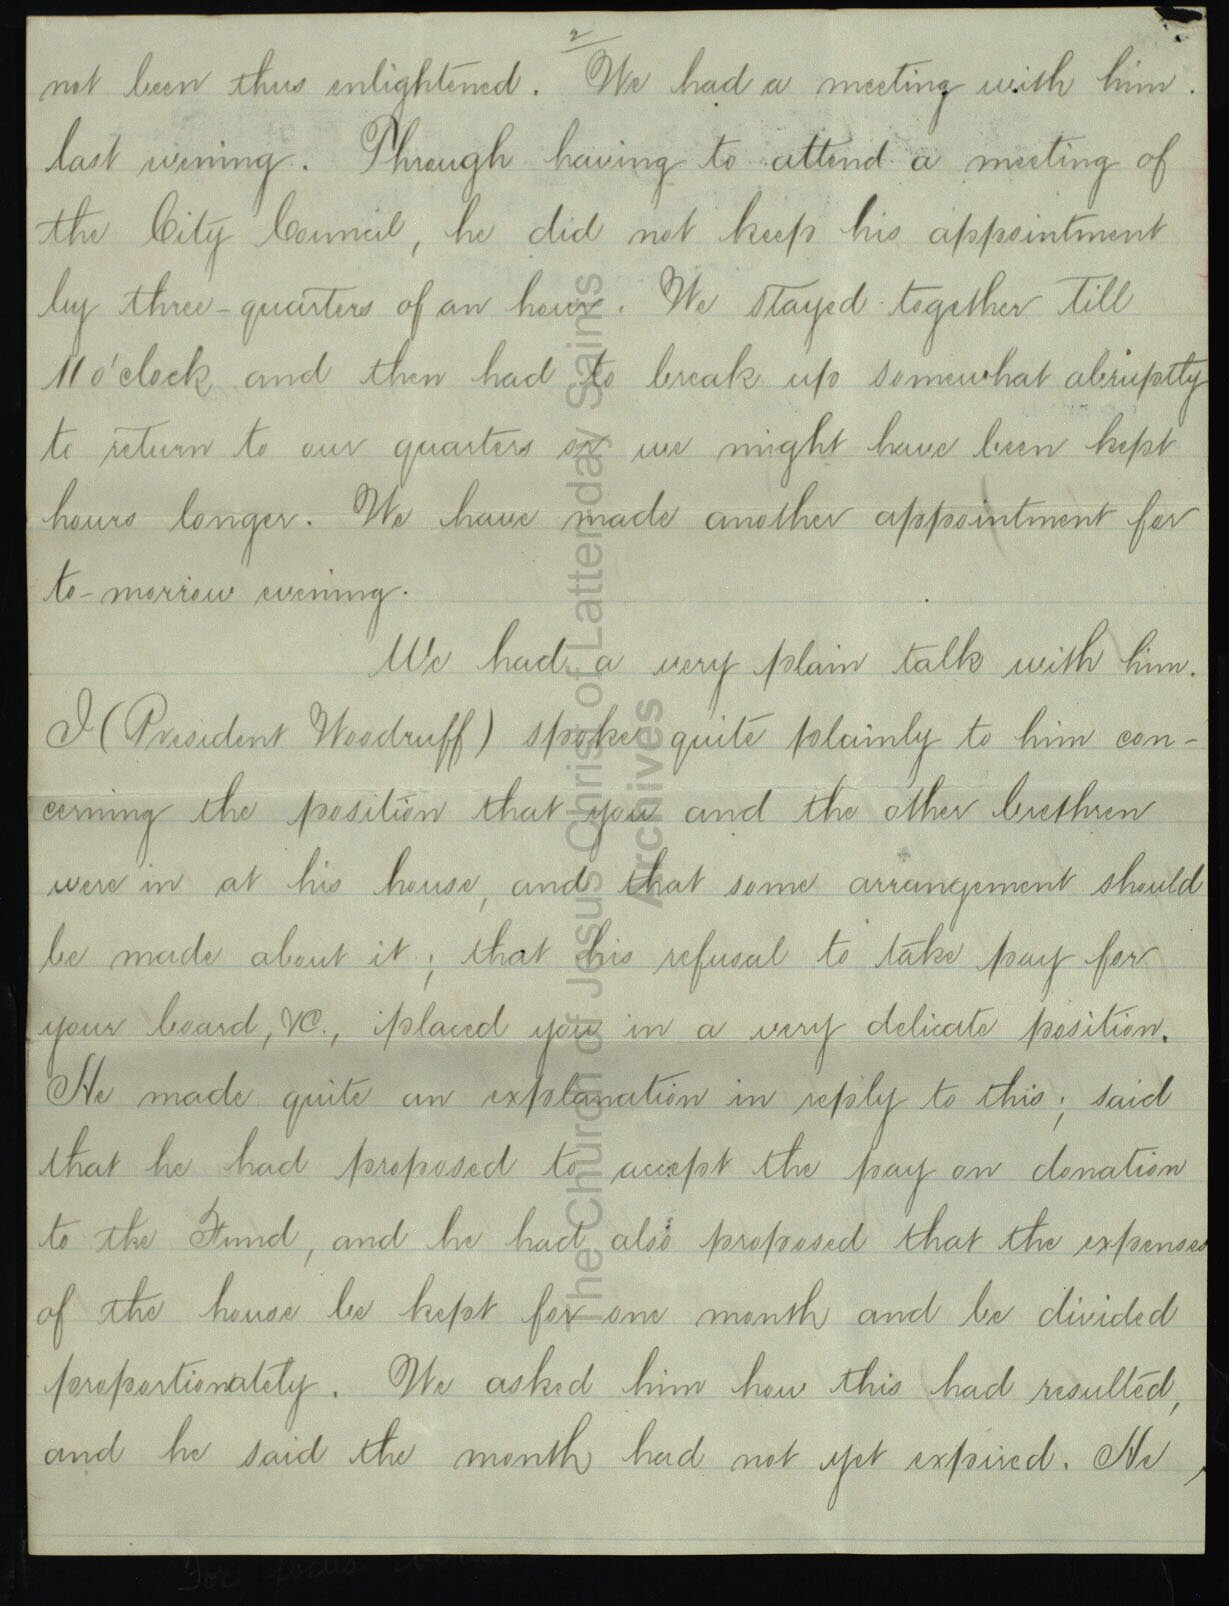 2
not been thus enlightened. We had a meeting with him
last evening. Through having to attend a meeting of
the City Council, he did not keep his appointment
by three-quarters of an hour. We stayed together till
11 o'clock and then had to break up somewhat abruptly
to return to our quarters or we might have been kept
hours longer. We have made another appointment for
to-morrow evening.
We had a very plain talk with him.
I (President Woodruff) spoke quite plainly to him con-
cerning the position that you and the other brethren
were in at his house, and that some arrangement should
be made about it; that his refusal to take pay for
your board, &c., placed you in a very delicate position.
He made quite an explanation in reply to this; said
that he had proposed to accept the pay on donation
to the Fund, and he had also proposed that the expenses
of the house be kept for one month and be divided
proportionately. We asked him how this had resulted,
and he said the month had not yet expired. He
The Church of Jesus Christ of Latterday Saints
Archives